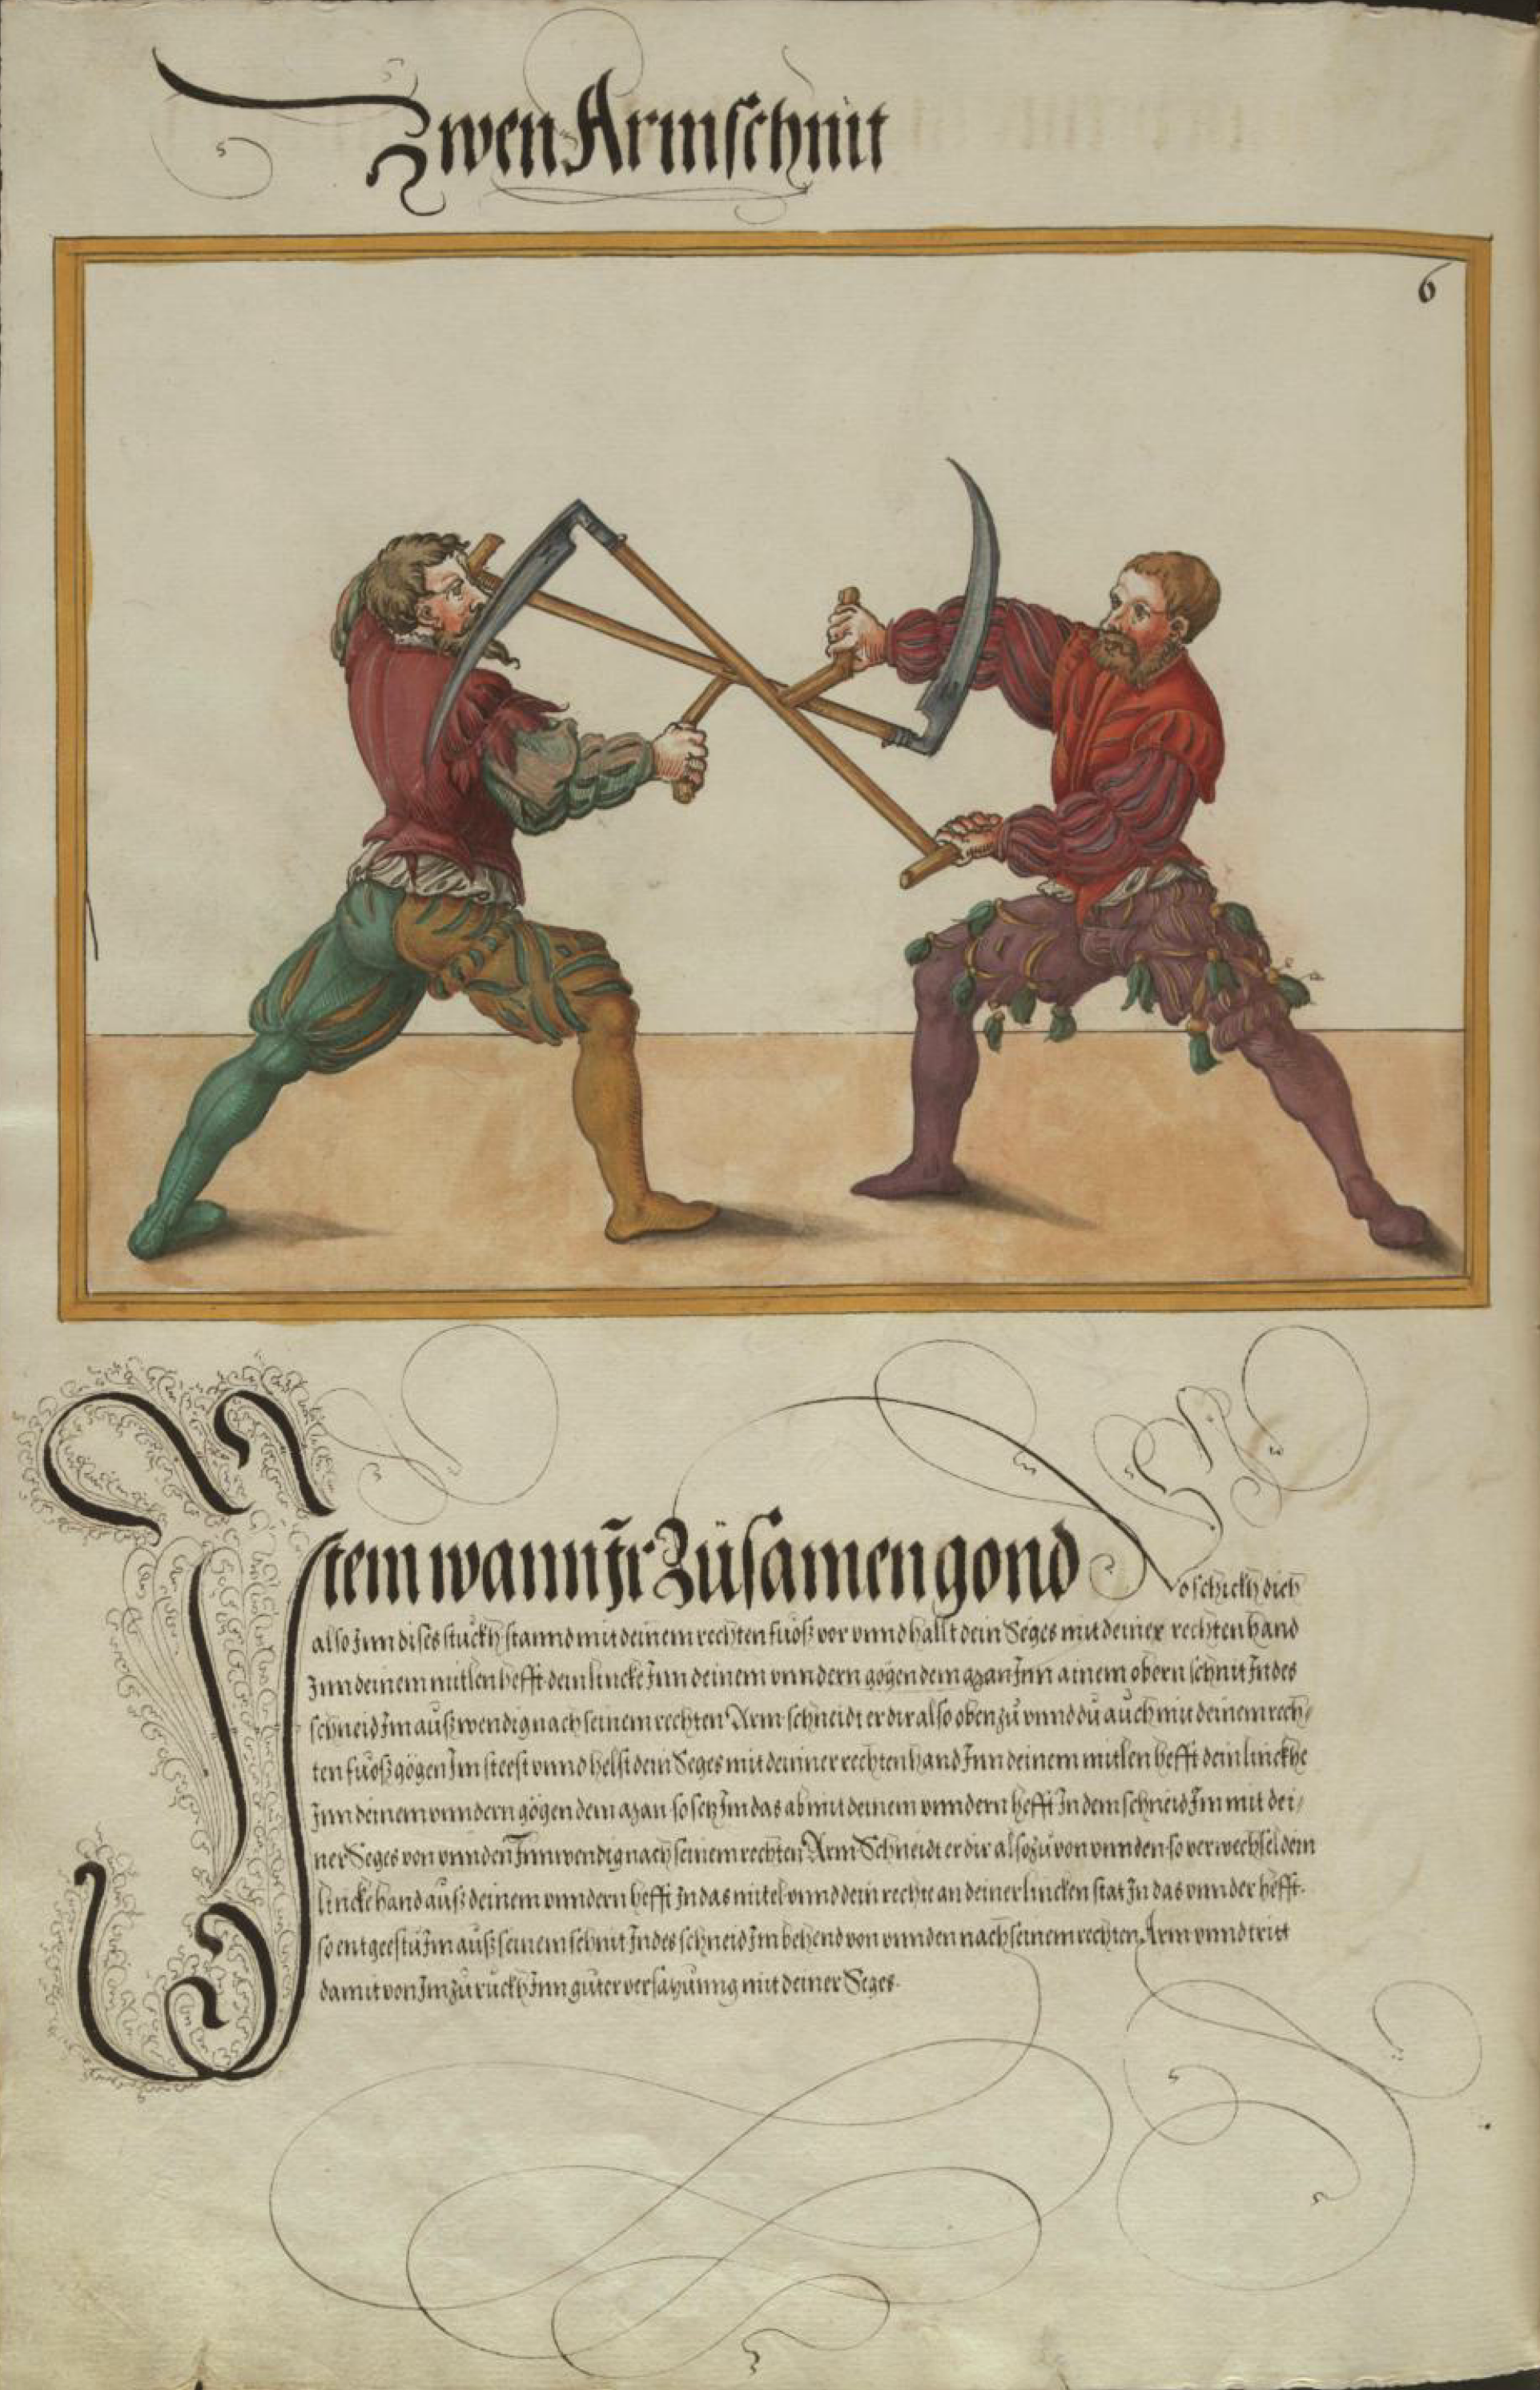 Zwen Armschnit
6
Item wann Jr Zůsamen gond So schickh dich
also Jnn dises stuckh stannd mit deinem rechten fůoß vor vnnd hallt dein Seges mit deiner rechten hand
Jnn deinem mitlen hefft dein lincke Jnn deinem vnndern gögen dem man Jnn ainem obern schnit Jndes
schneid Jm außwendig nach seinem rechten Arm schneidt er dir also oben zů vnnd dů auch mit deinem rech/
ten fůoß gögen Jm steest vnnd helst dein Seges mit deinner rechten hand Jnn deinem mitlen hefft dein linckhe
Jnn deinem vnndern gögen dem man so setz Jm das ab mit deinem vnndern hefft Jn dem schneid Jm mit dei/
ner Seges von vnnden Jnnwendig nach seinem rechten Arm Schneidt er dir also zů von vnnden so verwechsel dein
lincke hand auß deinem vnndern hefft Jn das mitel vnnd dein rechte an deiner lincken stat Jn das vnnder hefft.
so entgeestu Jm auß seinem schnit Jndes schneid Jm behend von vnnden nach seinem rechten Arm vnnd tritt
damit von Jm zůruckh Jnn gůter versatzůnng mit deiner Seges.